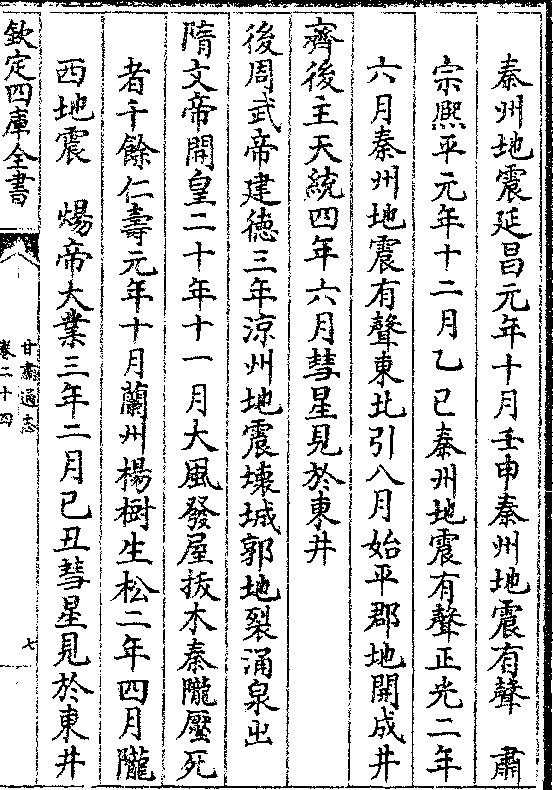 秦州地震延昌元年十月壬申秦州地震有聲　肅
宗熙平元年十二月乙巳秦州地震有聲正光二年
六月秦州地震有聲東北引八月始平郡地開成井
齊後主天統四年六月彗星見於東井
後周武帝建德三年涼州地震壞城郭地裂涌泉出
隋文帝開皇二十年十一月大風發屋拔木秦隴壓死
者千餘仁壽元年十月蘭州楊樹生松二年四月隴
西地震　煬帝大業三年二月己丑彗星見於東井
欽定四庫全書
甘肅通志
卷二十四
七